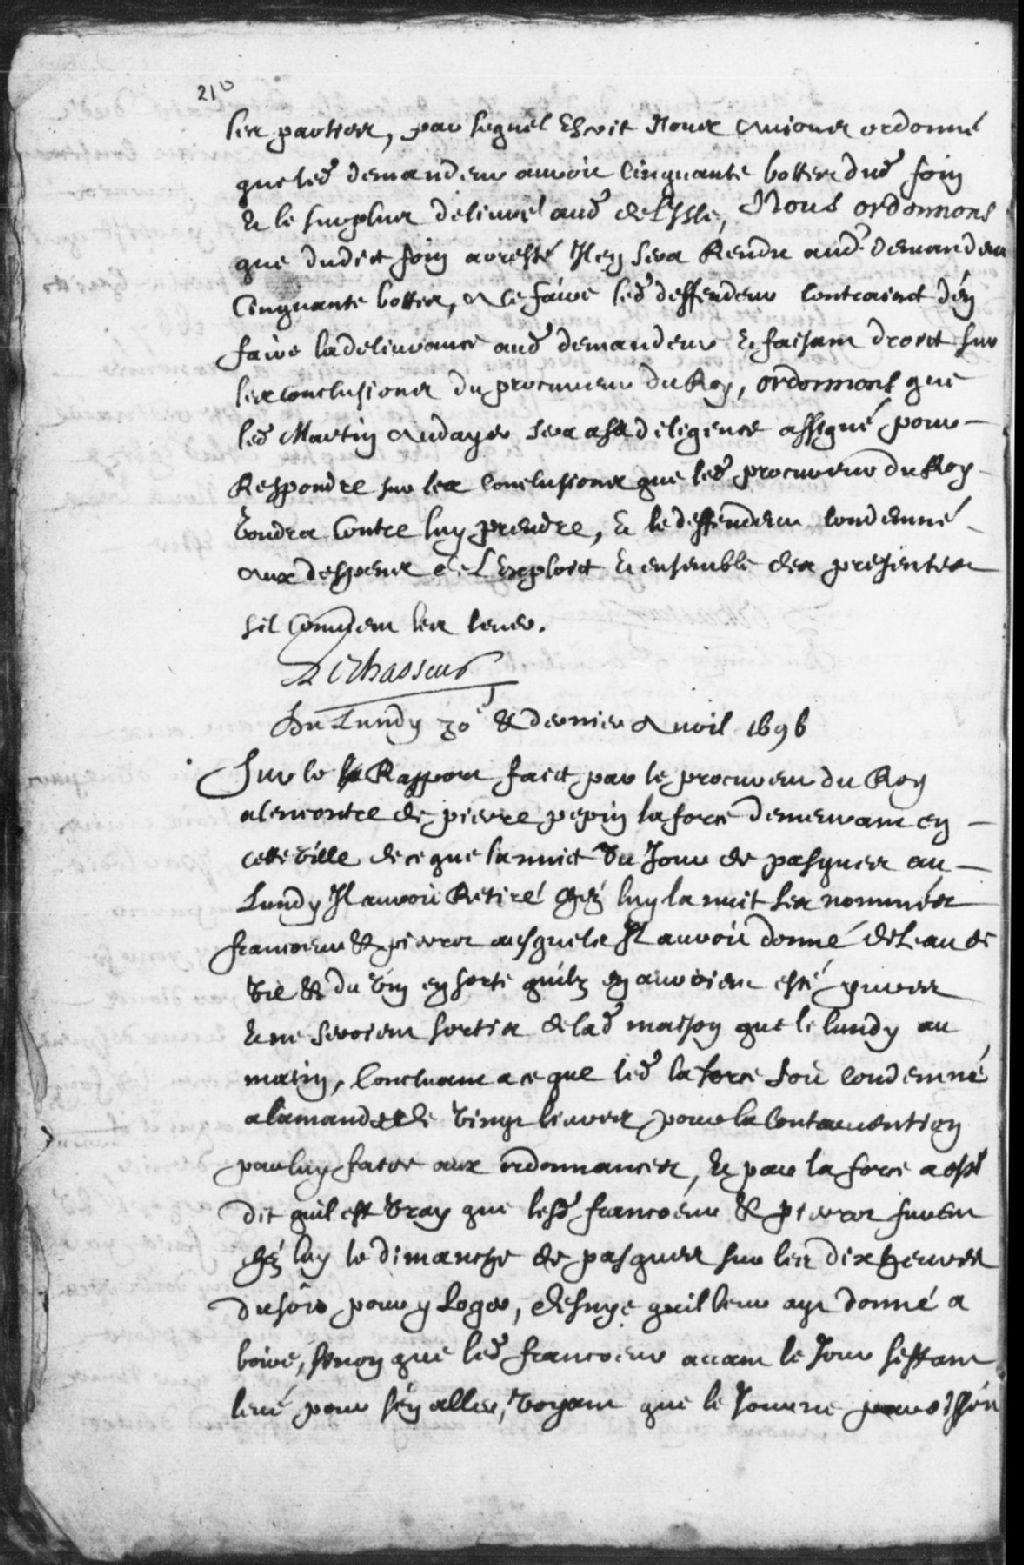 210
les parties, par lequel Escrit Nous avions ordonné
que led demandeur auroit Cinquante bottes dud foin
& le surplus deliuré aud deLisle, Nous ordonnons
que dudit foin arresté Il en sera Rendu aud demandeur
Cinquante bottes, a ce faire led deffendeur contraint d'en
faire la deliurance aud demandeur & faisant droict sur
les conclusions du procureur du Roy, ordonnons que
led Martin sera a sa diligence assigné pour
Respondre sur les Conclusions que led procureur du Roy
voudra Contre luy prendre, & le deffendeur condemné
aux despens de L'exploit & ensemble des presentes
sil Convient les leuer.
RChasseur
Du Lundy 30 & dernier Auril 1696
Sur le Rapport faict par le procureur du Roy
alencontre de pierre pepin laforce demeurant en
cette ville de ce que la nuict du Jour de pasques au
Lundy Il auroit Retiré chéz luy la nuit les nommés
francoeur & pierrot ausquels Il auroit donné de Leau de
vie & du vin en sorte quilz en auroient esté yures
& ne seroient sortis de lad maison que le lundy au
matin, Concluant a ce que led laforce soit condemné
a lamande de vingt liures pour la Contrauention
par luy faite aux ordonnances, & par laforce a esté
dit quil est vray que lesd francoeur & pierrot furent
chéz luy le dimanche de pasques sur les dix heures
du soir pour y Loger, desnye quil leur ayt donné a
boire, sinon que led francoeur auant le Jour sestant
leué pour s'en aller, voyant que le Jour ne paroissoit